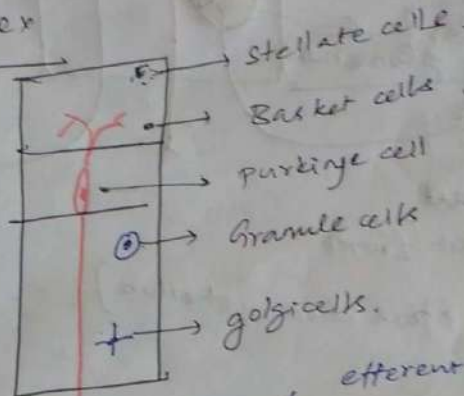 ex
stellate cells
Basket cells
purkinje cell
Granule cells
golgicells.
efferent